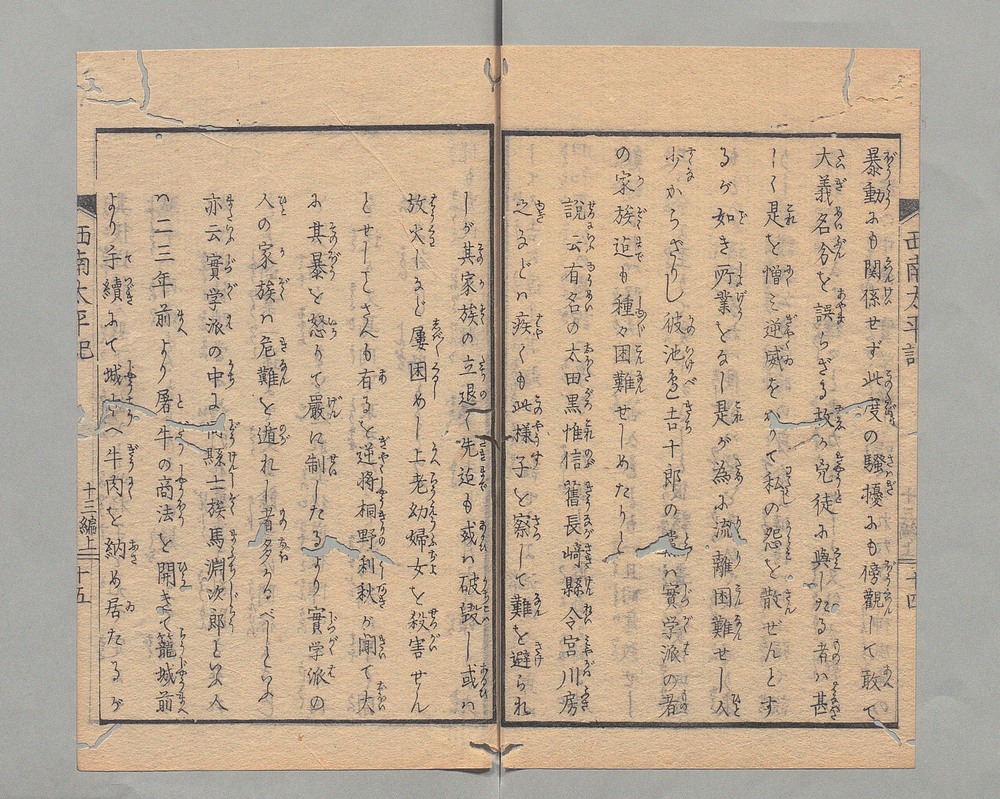 暴動にも関係せず此度の騒擾にも傍観して敢て
大義名分を誤らざる故か兇徒に與したる者は甚
しく是を憎み逆威をかりて私の怨を散ぜんとす
るが如き所業をなし是が為に流離困難せし人
少からざりし彼池邉吉十郎のは實学派の者
の家族迠も種々困難せしめたりし
説云有名の太田黒惟信舊長﨑縣令宮川房
之などは疾くも此様子を察して難を避られ
しが其家族の立退く先迠も或は破毀し或は
放火しなど屢困めし上老幼婦女を殺害せん
とせしことさへも有ると逆将桐野利秋が聞て大
に其暴を怒りて嚴に制したるより實学派の
人の家族は危難を遁れし者多かるべしといふ
亦云實学派の中に縣士族馬淵次郎といふ人
は二三年前より屠牛の商法を開きて籠城前
より手續にて城へ牛肉を納め居たるが
西南太平記
十三編上
十四
西南太平記
十三編上
十五